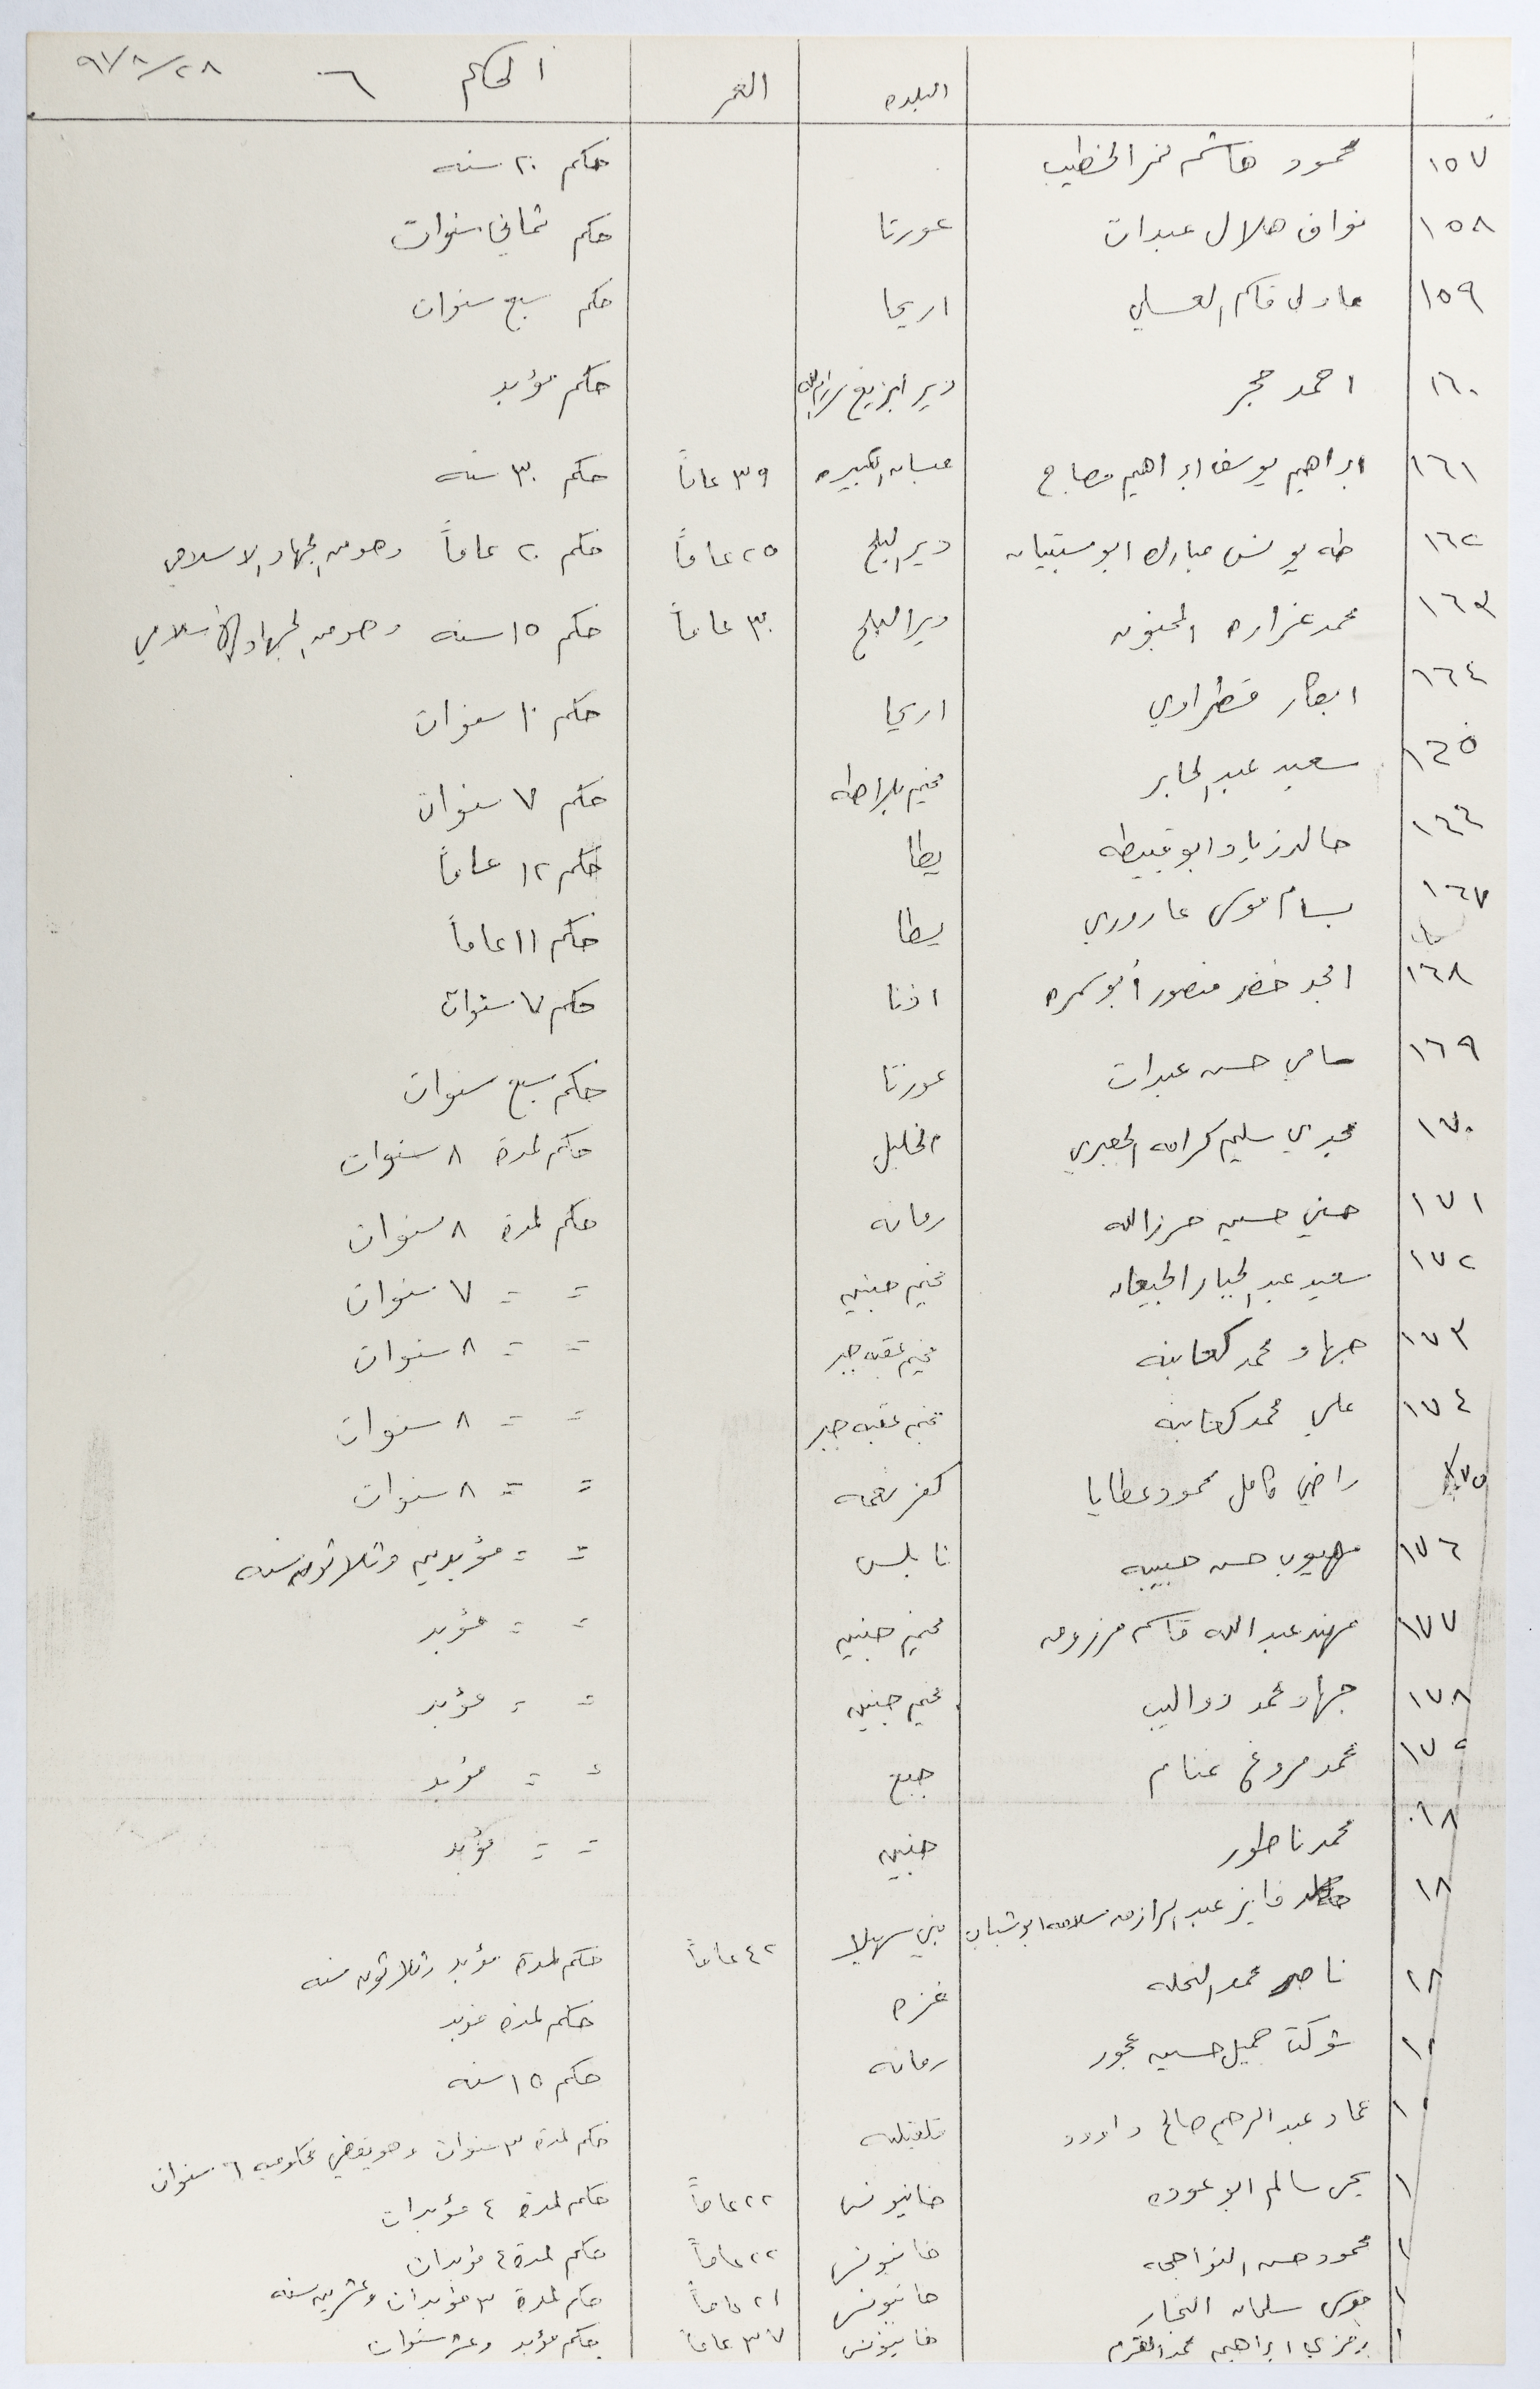 البلده العمر الحكم ٦ ٩١/٨/٢٨
١٥٧ محمود هاشم نمر الخطيب حكم ٢٠ سنه
١٥٨ نواف هلال عبدات عورتا حكم ثماني سنوات
١٥٩ عادل قاسم العسلي اريحا حكم سبع سنوات
١٦٠ احمد حجر دير أبزيع رام الله حكم مؤبد
١٦١ ابراهيم يوسف ابراهيم مصابح عبسان الكبيره ٣٩ عاماً حكم ٣٠ سنه
١٦٢ طه يونس مبارك ابو مستبيان دير البلح ٢٥ عاماً حكم ٢٠ عاماً وهو من الجهاد الاسلامي
١٦٣ محمد غزاره المجنون دير البلح ٣٠ عاماً حكم ١٥ سنه وهو من الجهاد الأسلامي
١٦٤ ابكار قطراوي اريحا حكم ١٠ سنوات
١٦٥ سعيد عبد الجابر مخيم بلاطه حكم ٧ سنوات
١٦٦ خالد زياد ابو قبيطه يطا حكم ١٢ عاماً
١٦٧ بسام موسى عاروري يطا حكم ١١ عاماً
١٦٨ امجد خضر منصور أبو سمره اذنا حكم ٧ سنوات
١٦٩ سامي حسن عبدات عورتا حكم سبع سنوات
١٧٠ مجدي سليم كرامه الجعبري الخليل حكم لمدة ٨ سنوات
١٧١ حسني حسين حرزالله رمانه حكم لمدة ٨ سنوات
١٧٢ سعيد عبد الجبار الجيعان مخيم جنين = = ٧ سنوات
١٧٣ جهاد محمد كعابنه مخيم عقبه جبر = = ٨ سنوات
١٧٤ علي محمد كعابنه مخيم عقبه جبر = = ٨ سنوات
١٧٥ راضي كامل محمود عطايا كفر نعمه = = ٨ سنوات
١٧٦ مهيوب حسن حبيبه نابلس = = مؤبدين وثلاثون سنه
١٧٧ مهند عبدالله قاسم مرزوق مخيم جنين = = مؤبد
١٧٨ جهاد محمد دواليب مخيم جنين = = مؤبد
١٧٩ محمد مروح غنام جبع = = مؤبد
١٨٠ محمد ناطور جنين = = مؤبد
١٨ خالد فايز عبد الرازق سلامه ابو شباب بني سهيلا ٤٢ عاماً حكم لمدة مؤبد وثلاثون سنه
١٨ ناصر محمد النخله غزه حكم لمدة مؤبد
١٨ شوكت جميل حسين عجور رمانه حكم ١٥ سنه
١ عماد عبد الرحيم صالح داوود قلقيليه حكم لمدة ٣ سنوات وهو يقضي محكوميه ٦ سنوات
١ يحي سالم ابو عوده خانيونس ٢٢ عاماً حكم لمدة ٤ مؤبدات
١ محمود حسن النواجحه خانيونس ٢٢ عاماً حكم لمدة ٤ مؤبدات
١ موسى سلمان النجار خانيونس ٢١ عاماً حكم لمدة ٣ مؤبدات وعشرين سنه
١ رمزي ابراهيم محمد القرم خانيونس ٣٧ عاماً حكم مؤبد وعشر سنوات